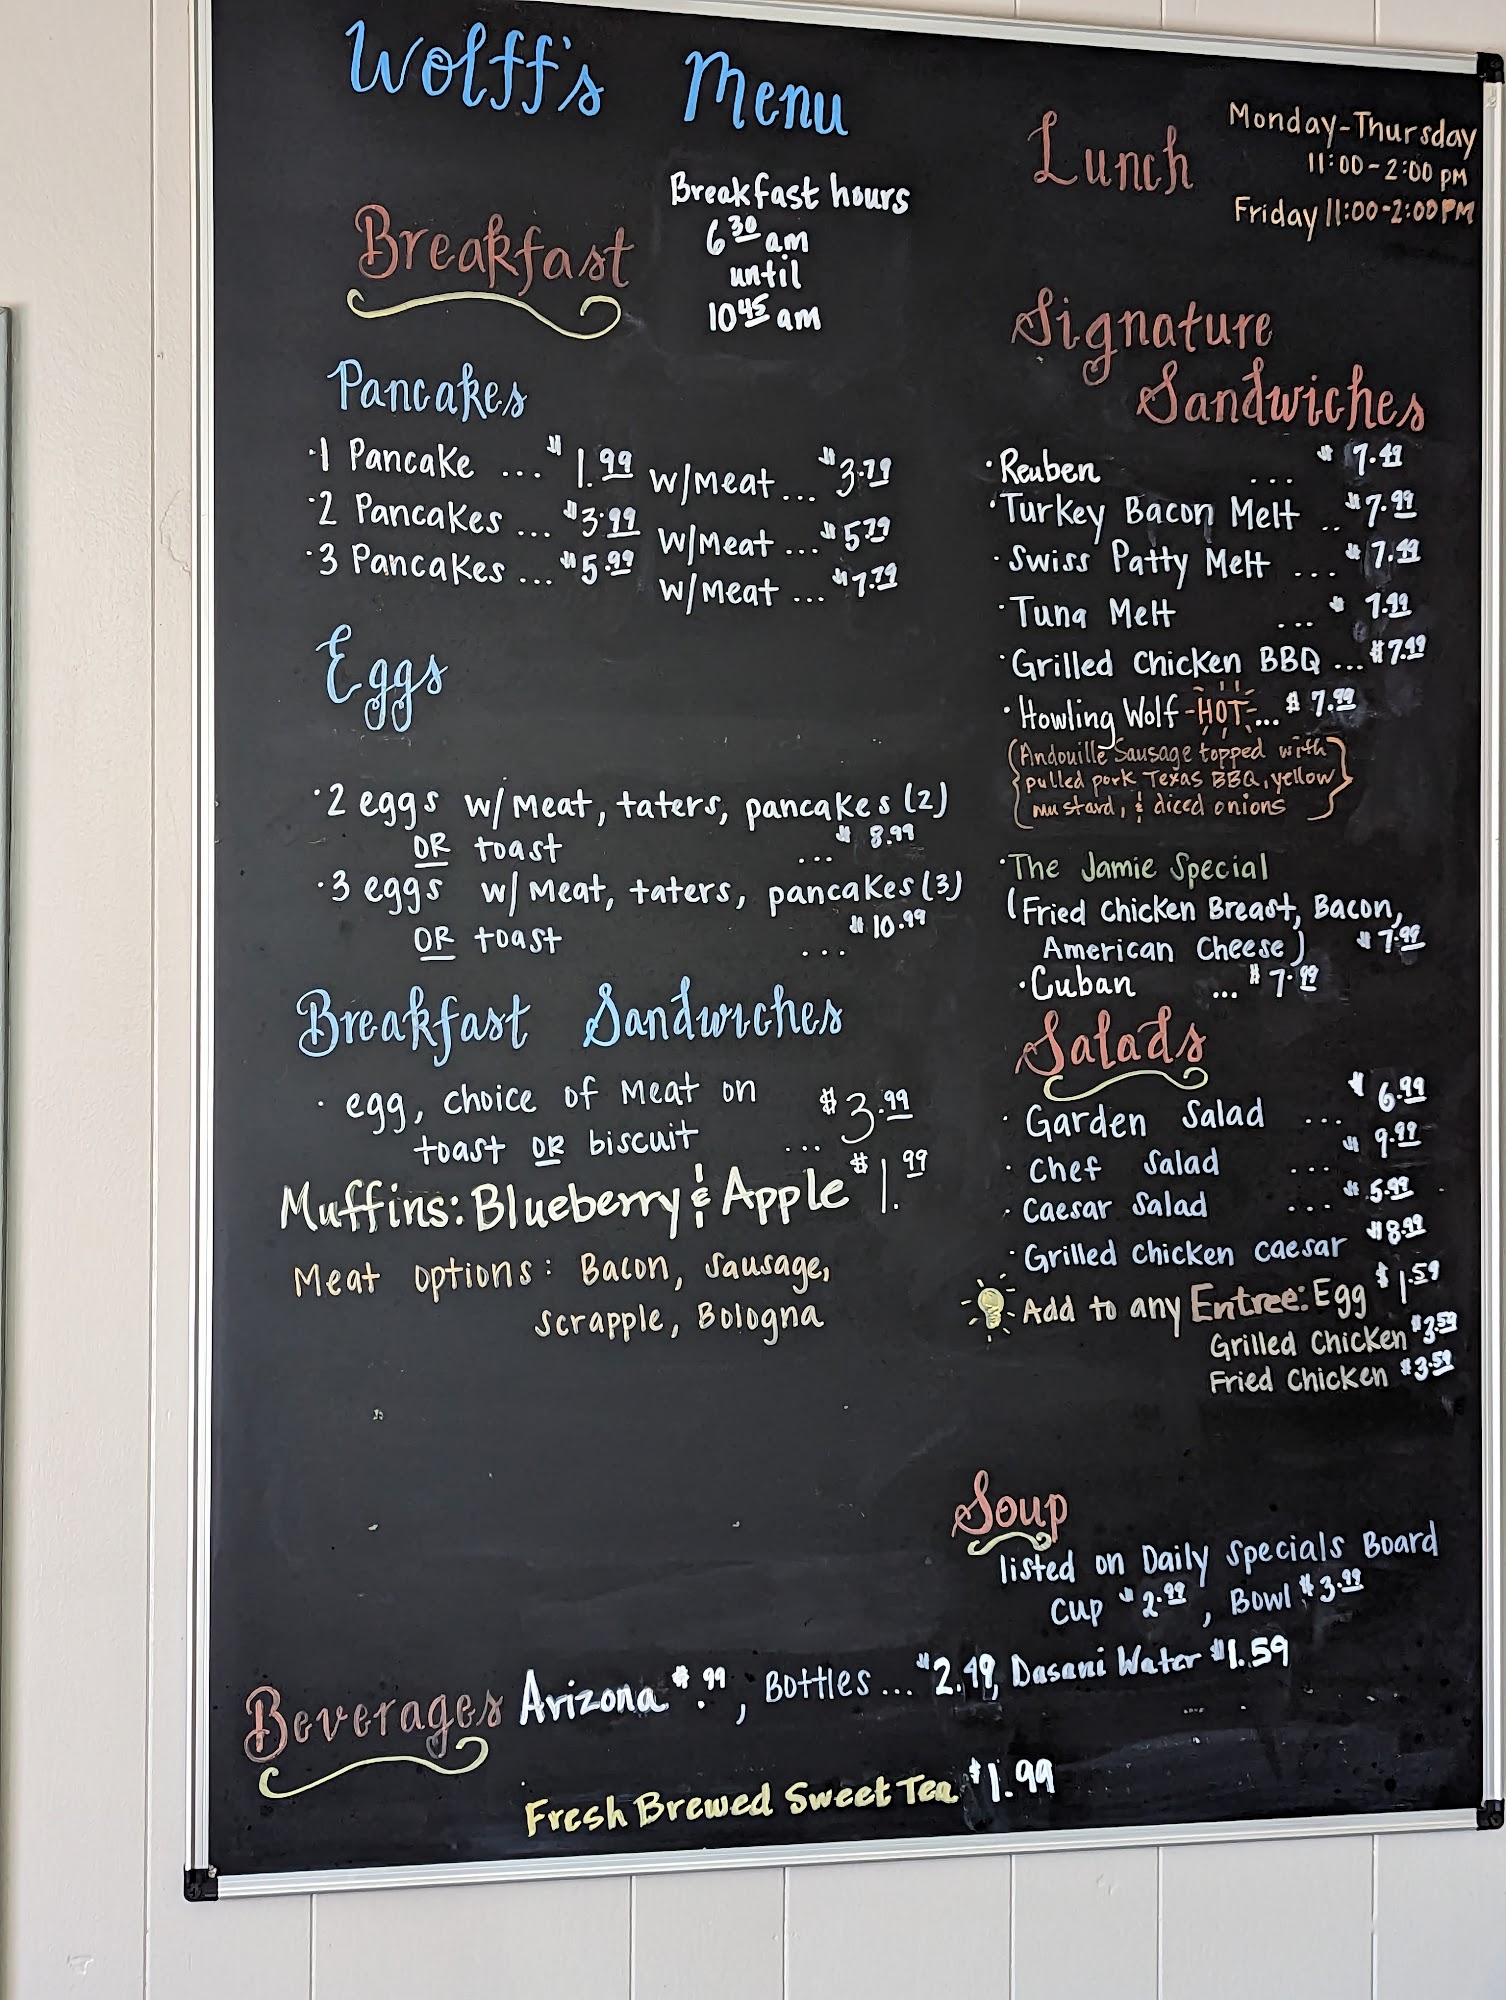 Wolff's Menu
Breakfast
Breakfast hours
6 30 am
until
10 45 am
Pancakes
·1 Pancake ... $1.99 w/meat ... $3.79
·2 Pancakes ... $3.99 w/meat ... $5.79
·3 Pancakes ... $5.99 w/meat ... $7.79
Eggs
·2 eggs w/meat, taters, pancakes (2)
OR toast ... $8.99
·3 eggs w/meat, taters, pancakes (3)
OR toast ... $10.99
Breakfast Sandwiches
· egg, choice of meat on
toast OR biscuit ... $3.99
Muffins: Blueberry & Apple $1.99
Meat options: Bacon, Sausage,
Scrapple, Bologna
Lunch
Monday-Thursday
11:00-2:00 pm
Friday 11:00-2:00 PM
Signature
Sandwiches
·Reuben ... $7.49
·Turkey Bacon Melt .. $7.99
·Swiss Patty Melt ... $7.49
·Tuna Melt ... $7.99
·Grilled Chicken BBQ ... $7.99
·Howling Wolf -HOT- ... $7.99
(Andouille Sausage topped with
pulled pork Texas BBQ, yellow
mustard, & diced onions)
·The Jamie Special
(Fried Chicken Breast, Bacon,
American Cheese) $7.99
·Cuban ... $7.99
Salads
· Garden Salad ... $6.99
· Chef Salad ... $9.99
· Caesar Salad ... $5.99
· Grilled Chicken Caesar $8.99
Add to any Entree: Egg $1.59
Grilled Chicken $3.59
Fried Chicken $3.59
Soup
listed on Daily Specials Board
Cup $2.99, Bowl $3.99
Beverages Arizona $.99, Bottles ... $2.49, Dasani Water $1.59
Fresh Brewed Sweet Tea $1.99